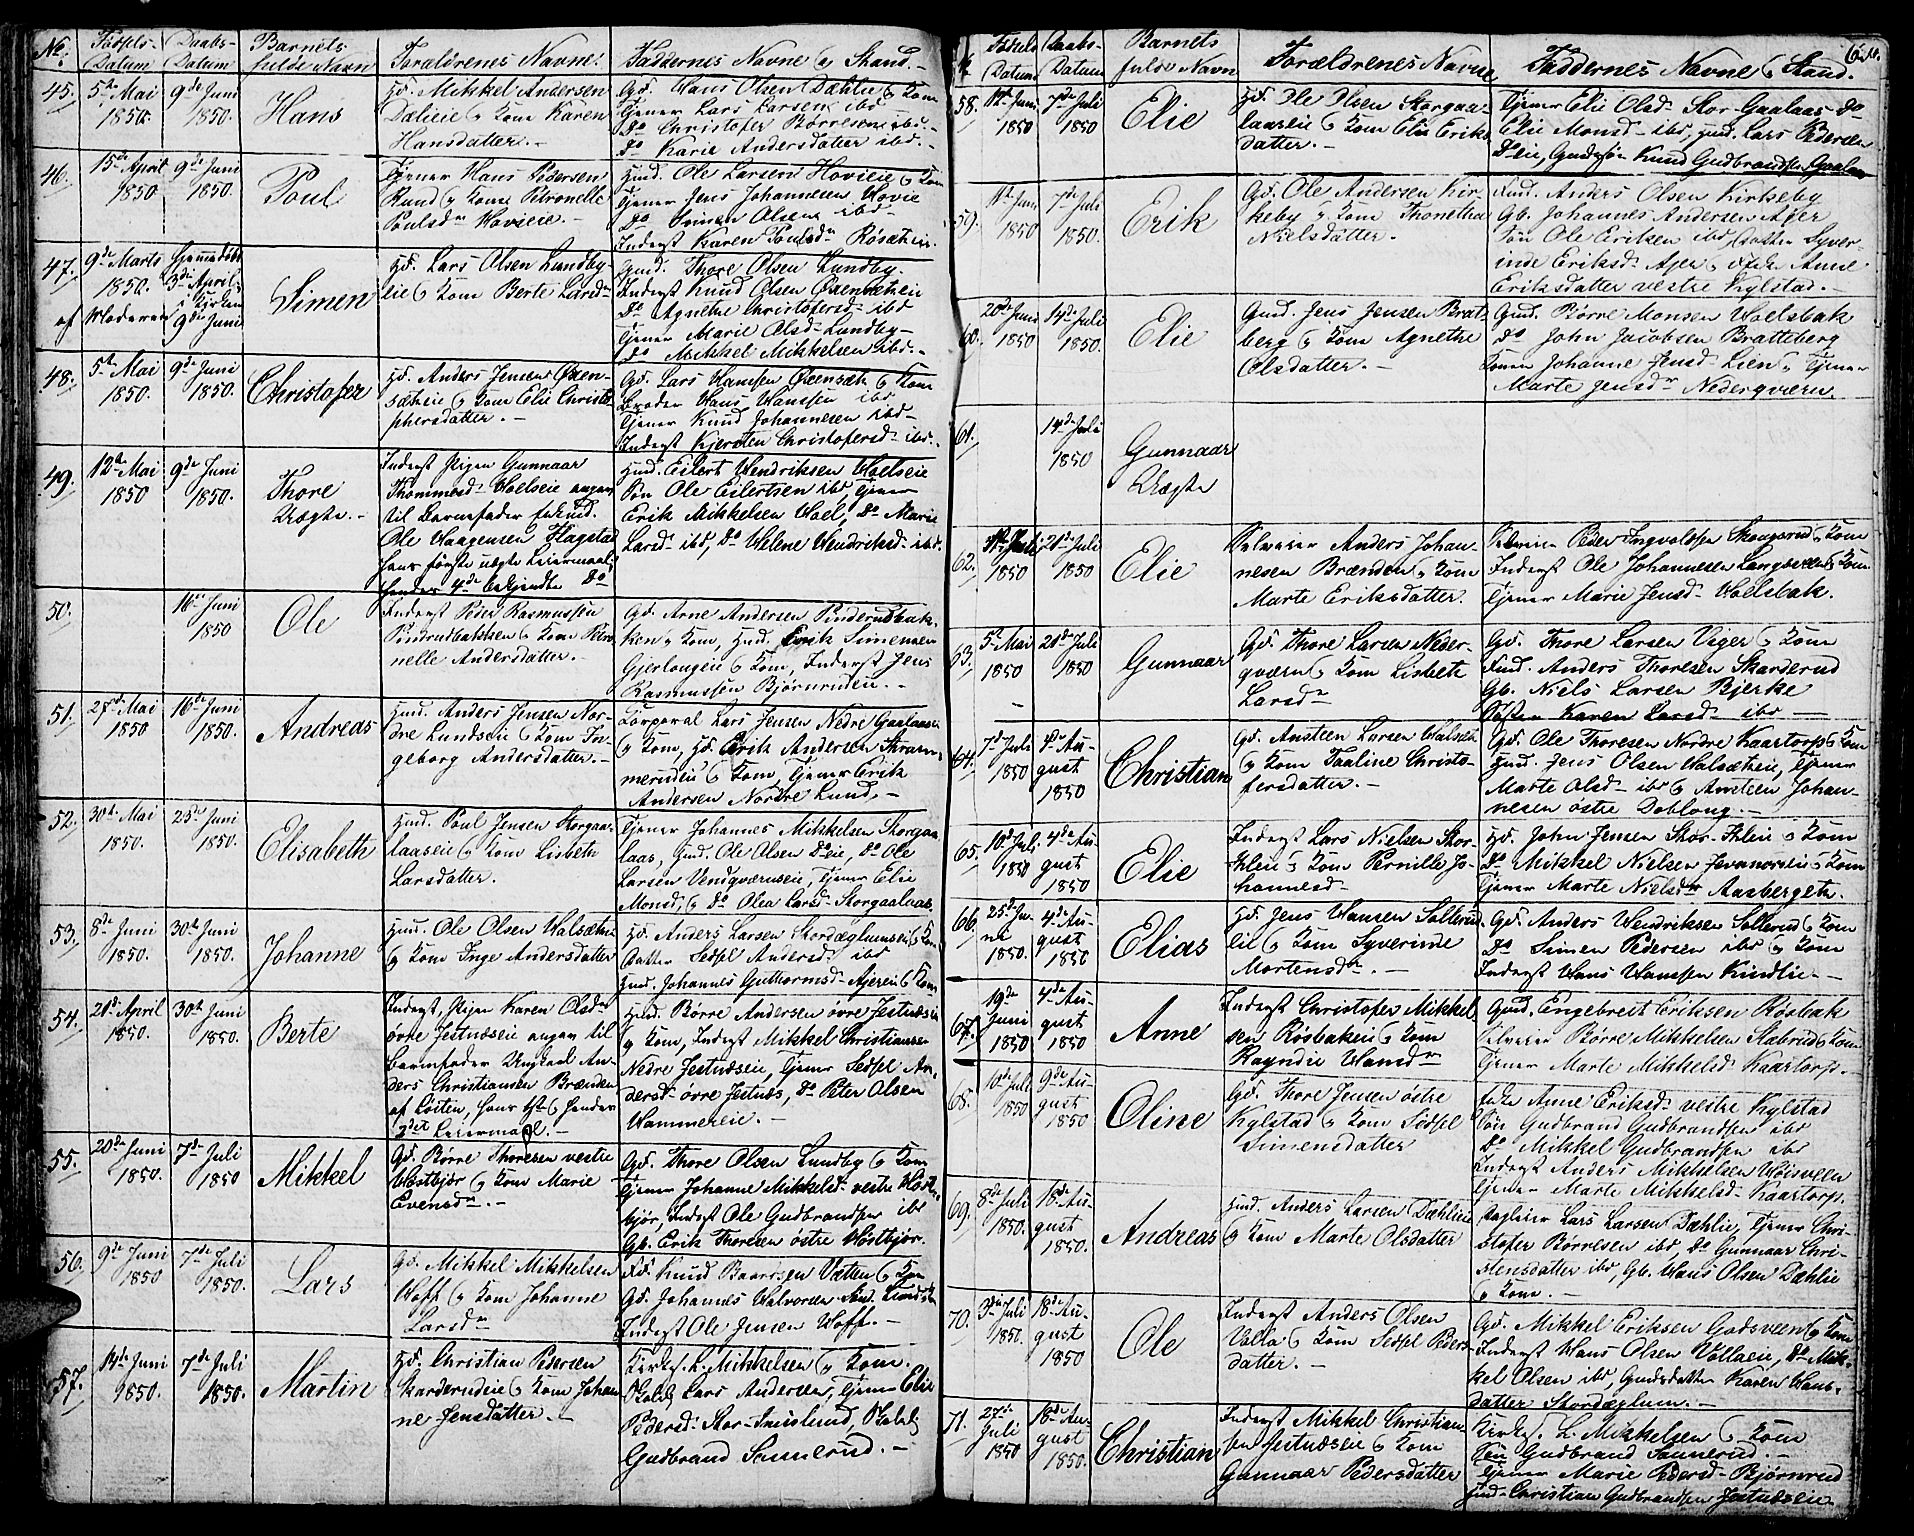 No.
Fødsels-
Datum
Daabs-
Datum
Barnets
fulde Navn
Forældrenes Navne.
Faddernes Navne & Stand.
45.
5te Mai
1850.
9de Juni
1850.
Hans
Hd. Mikkel Andersen
Dælieie & Kone Karen
Hansdatter.-
Gd. Hans Olsen Dæhlie & Kone
Tjener Lars Larsen ibd
Do Christofer Børresen ibd.-
Do Karie Andersdatter ibd.-
46.
15de April
1850.
9de Juni
1850.
Poul
Tjener Hans Pedersen
Rund & Kone Petronelle
Poulsdr Hovieie.-
Hmd. Ole Larsen Hovieie & Kone
Tjener Jens Johannesen Hovie
Do Simen Olsen ibd-
Inderst Karen Poulsdr
47.
9de Marts
1850.
af Moderen
Hjemmedøbt
3die April
i Kirken
9de Juni
Simen
Hd. Lars Olsen Lundby-
eie & Kone Berte Larsdr
Hmd. Thore Olsen Lundby.
Inderst Knud Olsen Øxensætheie
Do Agnethe Christofersd- ibd
Tjener Marie Olsd- Lundby-
Do Mikkel Mikkelsen ibd.-
48.
5te Mai
1850.
9de Juni
1850.
Christofer
Hd. Anders Jensen Øxen-
sætheie & Kone Elie Christo-
phersdatter.-
Gd. Lars Hansen Øxensæth & Kone
Broder Hans Hansen ibd
Tjener Knud Johannesen ibd-
Inderst Kjersten Christofersd- ibd.
49.
12te Mai
1850
9de Juni
1850.
Thore
Uægte.-
Inderst Pigen Gunnaar
Thommesd- Hoelseie angav
til Barnefader Enkmd.
Ole Haagensen Flagstad
hans første uægte Leiermaal,
hendes 4de bekjendte Do
Hmd. Eilert Hendriksen Hoelseie
Søn Ole Eilertsen ibd, Tjener
Erik Mikkelsen Hoel, Do Marie
Larsd- ibd, Do Helene Hendriksd- ibd.
50.
16de Juni
1850
Ole
Inderst Peder Rasmussen
Pinderudbakken & Kone Petro-
nelle Andersdatter.-
Gd. Arne Andersen Pinderudbak-
ken & Kone, Hmd. Erik Simensen
Gjerlougeie & Kone, Inderst Jens
Rasmussen Bjørnrudeie.-
51.
27de Mai
1850
16de Juni
1850.
Andreas
Hmd. Anders Jensen Nor-
dre Lundseie & Kone In-
geborg Andersdatter.-
Corporal Lars Jensen Nedre Gaalaas
& Kone, Hd. Erik Andersen Stram-
merudeie & Kone, Tjener Erik
Andersen Nordre Lund.-
52.
30te Mai
1850.
23de Juni
1850.
Elisabeth
Hmd. Poul Jensen Storgaa-
laaseie & Kone Lisbeth
Larsdatter.
Tjener Johannes Mikkelsen Storgaa-
laas, Hmd. Ole Olsen Do eie, Do Ole
Larsen Vendqværnseie, Tjener Elie
Monsd, & Do Olea Larsd- Storgaalaas.
53.
8de Juni
1850.
30te Juni
1850.
Johanne
Hmd. Ole Olsen Halsæth
& Kone Inge Andersdatter
Hd. Anders Larsen Stordæglumseie & Kone
Datter Sedsel Andersd- ibd
Hmd. Johannes Guthormsd- Ajereie & Kone
54.
21de April
1850.
30te Juni
1850.
Berte
Inderst, Pigen Karen Olsdr
øvre Jestnæseie angav til
Barnefader Ungkarl An-
ders Christiansen Brænden
af Løiten, hans 1ste & hendes
3det Leiermaal.-
Hmd. Børre Andersen øvre Jestnæseie
& Kone, Inderst Mikkel Christiansen
Nedre Jestnæseie, Tjener Sedsel An-
dersd- øvre Jestnæs, Do Peter Olsen
Hammereie.-
55.
20de Juni
1850.
7de Juli
1850
Mikkel
Gd. Børre Thoresen vestre
Hostbjør & Kone Marie
Evensdr.-
Gd. Thore Olsen Lundby & Kone
Tjener Johanne Mikkelsd- vestre Host-
bjør, Inderst Ole Gudbrandsen ibd
Gb. Erik Thoresen østre Hostbjør.
56.
9de Juni
1850
7de Juli
1850.
Lars
Gd. Mikkel Mikkelsen
Hoff & Kone Johanne
Larsdr
Fd. Knud Baardsen Vætten & Kone
Gd. Johannes Halvorsen
Inderst Ole Jensen Hoff.-
57.
14de Juni
1850.
7de Juli
1850.
Martin
Hd. Christian Pedersen
Skarderudeie & Kone Johan-
ne Jensdatter.-
Kirkes. L. Mikkelsen & Kone.
Lars Andersen, Tjener Elie
Pedersd- Stor-
Gudbrand Sannerud.-
Fødsels
Datum
Daabs-
Datum
Barnets
fulde Navn
Forældrenes Navne
Faddernes Navne & Stand.
58.
1ste Juni
1850
7de Juli
1850
Elie
Hd. Ole Olsen Storgaa-
laaseie & Kone Elie Eriks-
datter.-
Tjener Elie Olsd- Stor-Gaalaas- Do
Elie Monsd- ibd, Hmd. Lars Pedersen
Do eie, Knud Gudbrandsen Gaalaas
59.
1850
7de Juli
1850.
Erik
Gd. Ole Andersen Kir-
keby & Kone Thonethea
Nielsdatter.-
Fmd. Anders Olsen Kirkeby
Gb. Johannes Andersen Ajer
Søn Ole Eriksen ibd, Datter Syver-
inde Eriksd- Ajer & Enke Anne
Eriksdatter vestre Kylstad.-
60.
20de Juni
1850
14de Juli
1850.
Elie
Gmd. Jens Jensen Brat-
berg & Kone Agnethe
Olsdatter.-
Gmd. Børre Monsen Hoelsbak
Do John Jacobsen Bratteberg
Konen Johanne Jensd- Lien & Tjener
Marte Jensdr Nederqværn.
61.
14de Juli
1850
Gunnaar
Uægte
62.
1850
21de Juli
1850
Elie
Selveier Anders Johan-
nesen Brænden & Kone
Marte Eriksdatter.
Selveier Peder Ingvoldsen Skougsrud & Kone
Inderst Ole Johannesen Langsveen & Kone
Tjener Marie Jensd- Hoelsbak.
63.
5te Mai
1850
21de Juli
1850
Gunnaar
Gd. Thore Larsen Neder-
qværn & Kone Lisbeth
Larsdr
Gd. Thore Larsen Viger & Kone
Fmd. Anders Thoresen Skarderud
Gb. Niels Larsen Bjerke
Søsteren Karen Larsd- ibd-
64.
7de Juli
1850
4de Au-
gust
1850
Christian
Gd. Austeen Larsen Halsæth
& Kone Taaline Christo-
fersdatter.-
Gd. Ole Thoresen Nordre Kaartorp & Kone
Hmd. Jens Olsen Halsætheie, Tjener
Marte Olsd- ibd & Amsteen Johan-
nesen østre Doblong.-
65.
10de Juli
1850
4de Au-
gust
1850
Elie
Inderst Lars Nielsen Stor-
& Kone Pernille Jo-
hannesd-
Hd. John Jensen & Kone
Do Mikkel Nielsen & Kone
Tjener Marte Nielsdr Aasbergeth.
66.
25de Ju-
ni
1850.
4de Au-
gust
1850.
Elias
Hd. Jens Hansen Sollerud-
eie & Kone Syverinde
Mortensdr.-
Gd. Anders Hendriksen Sollerud & Kone
Do Simen Pedersen ibd & Kone
Inderst Hans Hansen Kindlie.-
67.
19de
Juni
1850
4de Au-
gust
1850
Anne
Inderst Christofer Mikkel-
sen Røsbakeie & Kone
Rayndie Hansdr
Gmd. Engebreit Eriksen Røsbak
Selveier Børre Mikkelsen Stabrud & Kone
Tjener Marte Mikkelsd- Kaartorp.-
68.
10de Juli
1850
9de Au-
gust
1850
Oline
Gd. Thore Jensen østre
Kylstad & Kone Sedsel
Simensdatter
Enke Anne Eriksd- vestre Kylstad
Søn Gudbrand Gudbrandsen ibd
Do Mikkel Gudbrandsen ibd
Inderst Anders Mikkelsen Hoisveen
Tjener Marte Mikkelsd- Kaartorp.
69.
8de Juli
1850.
18de Au-
gust
1850.
Andreas
Hmd. Anders Larsen Dæhlieie
& Kone Marte Olsdatter
Lars Larsen Dæhlie, Tjener Chri-
stofer Børresen ibd, Do Gunnaar Chri-
stensdatter ibd, Gb. Hans Olsen Dæhlie
& Kone.-
70.
3die Juli
1850.
18de Au-
gust
1850
Ole
Inderst Anders Olsen
Volla & Kone Sedsel Peders-
datter.-
Gd. Mikkel Eriksen Godsveen & Kone
Inderst Hans Olsen Vollaeie, Do Mik-
kel Olsen ibd, Karen Hans-
datter Stordæglum.-
71.
27de
Juli
1850
18de Au-
gust
1850.
Christian
Inderst Mikkel Christian-
sen Jestnæseie & Kone
Gunnaar Pedersdatter
Kirkes. L. Mikkelsen & Kone
Søn Gudbrand Sannerud.-
Tjener Marie Pedersd- Bjørnrud
Hmd- Christian Gudbrandsen Jestnæseie